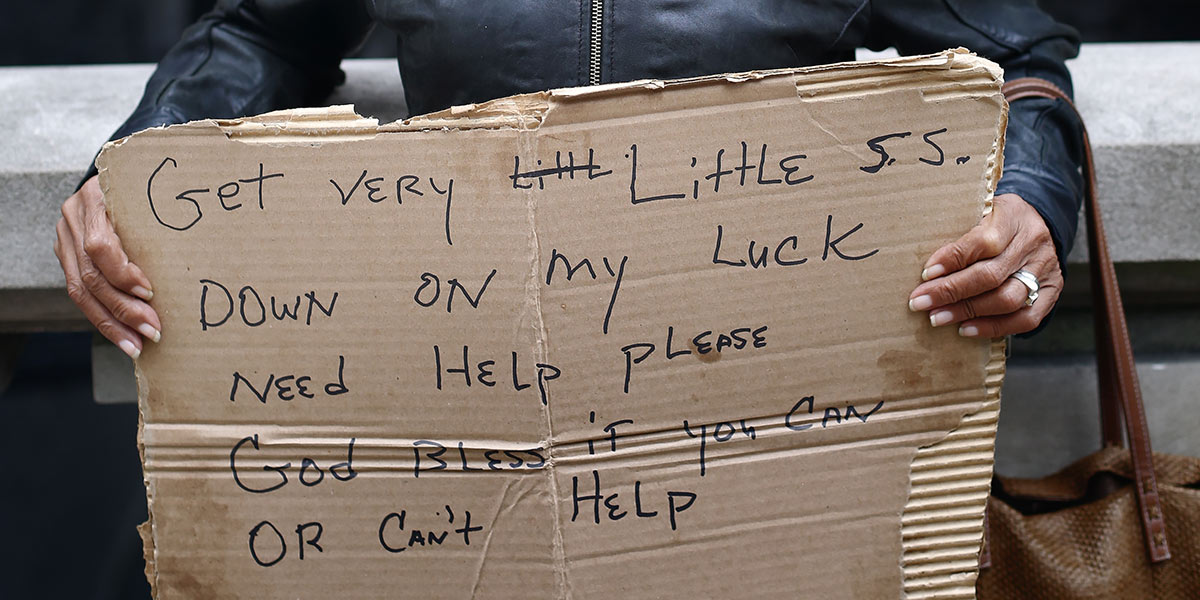 Get very Little Little S.S.
DOWN ON my LUCK
NEED HELP PLEASE
GOD BLESS if you CAN
OR CAN'T HELP